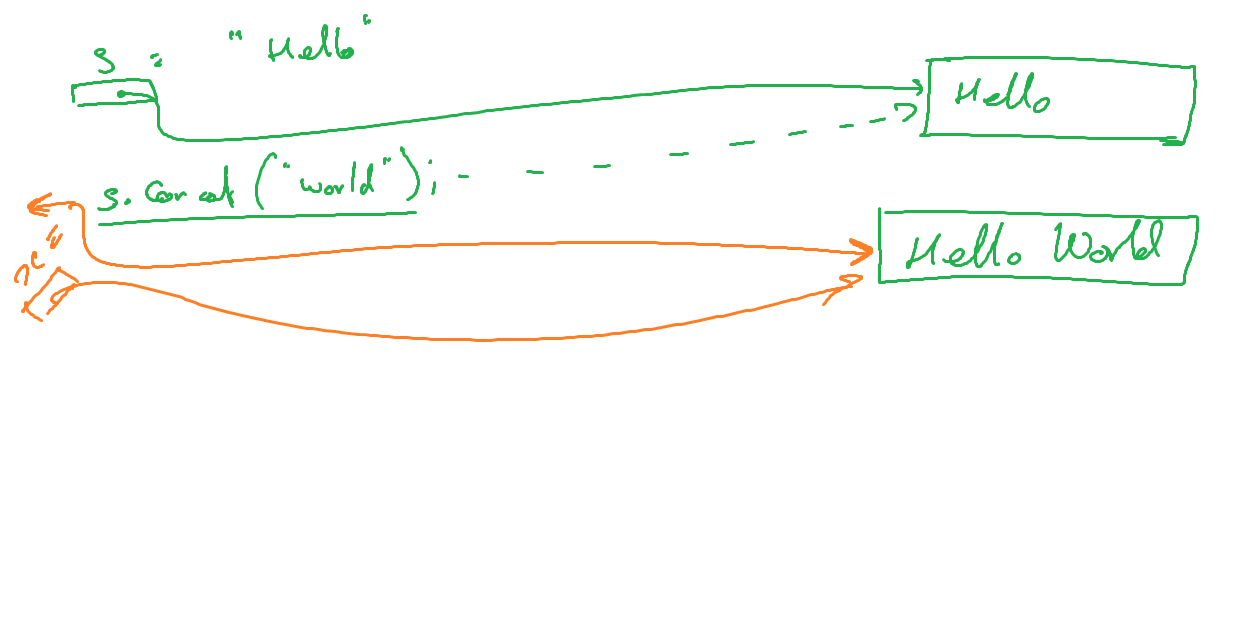 s = "Hello"
Hello
s.Concat("world");
Hello World